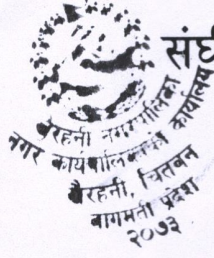 संघी
बैरहनी नगरपालिका
नगर कार्यपालिकाको कार्यालय
बैरहनी, चितवन
बागमती प्रदेश
२०७३